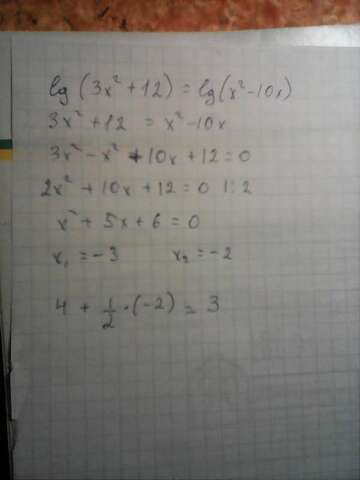 lg (3x² + 12) = lg(x² - 10x)
3x² + 12 = x² - 10x
3x² - x² + 10x + 12 = 0
2x² + 10x + 12 = 0 | : 2
x² + 5x + 6 = 0
x₁ = -3 x₂ = -2
4 + 1/2 · (-2) = 3